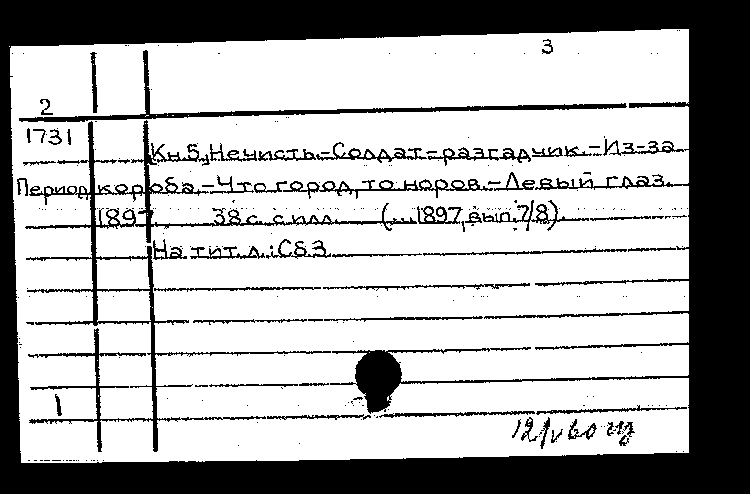 3
2
1731
Кн.5, Нечисть.-Солдат-разгадчик.-Из-за
Период короба.-Что город, то норов.-Левый глаз.
1897. 38с. с илл. (...1897, вып. 7/8).
На тит. л.: Сб 3
1
12/V 60